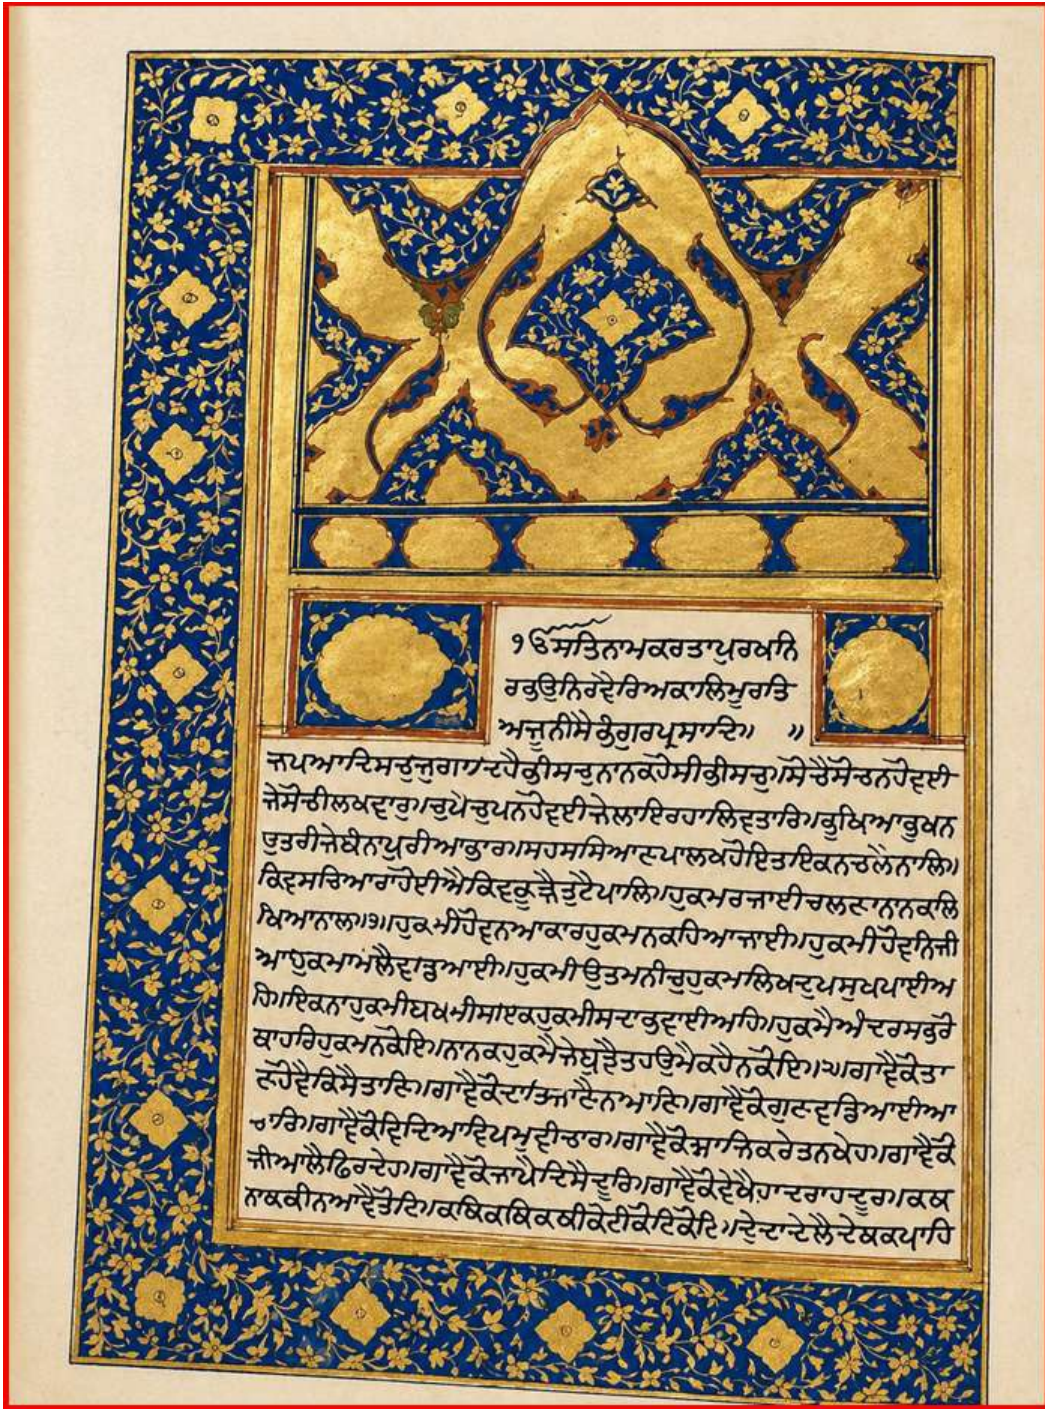 ੧ੳਸਤਿਨਾਮਕਰਤਾਪੁਰਖਨਿ
ਰਭਉਨਿਰਵੈਰਿਅਕਾਲਿਮੂਰਤਿ
ਅਜੂਨੀਸੈਭੰਗੁਰਪ੍ਰਸਾਦਿ॥ ॥
ਜਪਆਦਿਸਚੁਜੁਗਾਦਿਹੈਭੀਸਚੁਨਾਨਕਹੋਸੀਭੀਸਚੁ॥ਸੋਚੈਸੋਚਨਹੋਵਈ
ਜੇਸੋਚੀਲਖਵਾਰੁ॥ਚੁਪੈਚੁਪਨਹੋਵਈਜੇਲਾਇਰਹਾਲਿਵਤਾਰਿ॥ਭੂਖਿਆਭੁਖਨ
ਉਤਰੀਜੇਬੰਨਾਪੁਰੀਆਭਾਰ॥ਸਹਸਸਿਆਣਪਾਲਖਹੋਇਤਾਇਕਨਚਲੈਨਾਲਿ॥
ਕਿਵਸਚਿਆਰਾਹੋਈਐਕਿਵਕੂੜੈਤੁਟੈਪਾਲਿ॥ਹੁਕਮਰਜਾਈਚਲਣਾਨਾਨਕਲਿ
ਖਿਆਨਾਲ॥੧॥ਹੁਕਮੀਹੋਵਨਆਕਾਰਹੁਕਮਨਕਹਿਆਜਾਈ॥ਹੁਕਮੀਹੋਵਨਿਜੀ
ਆਹੁਕਮਾਮਲੈਵਾਡੁਆਈ॥ਹੁਕਮੀਉਤਮਨੀਚੁਹੁਕਮਲਿਖਦੁਪਸੁਖਪਾਈਅ
ਹਿ॥ਇਕਨਾਹੁਕਮੀਬਖਸੀਸਾਇਕਹੁਕਮੀਸਦਾਭਵਾਈਅਹਿ॥ਹੁਕਮੈਅੰਦਰਸਭਕੋ
ਬਾਹਰਿਹੁਕਮਨਕੋਇ॥ਨਾਨਕਹੁਕਮੈਜੇਬੁਝੈਤਹਉਮੈਕਹੈਨਕੋਇ॥੨॥ਗਾਵੈਕੋਤਾ
ਣਹੋਵੈਕਿਸੈਤਾਣਿ॥ਗਾਵੈਕੋਦਾਤਜਾਣੈਨਆਣਿ॥ਗਾਵੈਕੋਗੁਣਵਡਿਆਈਆ
ਚਾਰਿ॥ਗਾਵੈਕੋਵਿਦਿਆਵਿਪਮੁਵੀਚਾਰ॥ਗਾਵੈਕੋਸਾਜਿਕਰੇਤਨਖੇਹ॥ਗਾਵੈਕੋ
ਜੀਆਲੈਫਿਰਦੇਹ॥ਗਾਵੈਕੋਜਾਪੈਦਿਸੈਦੂਰਿ॥ਗਾਵੈਕੋਵੇਖੈਹਾਦਰਾਹਦੂਰ॥ਕਥ
ਨਾਕਥੀਨਆਵੈਤੋਟਿ॥ਕਥਿਕਥਿਕਥੀਕੋਟੀਕੋਟਿਕੋਟਿ॥ਦੇਦਾਦੇਲੈਦੇਥਕਪਾਹਿ